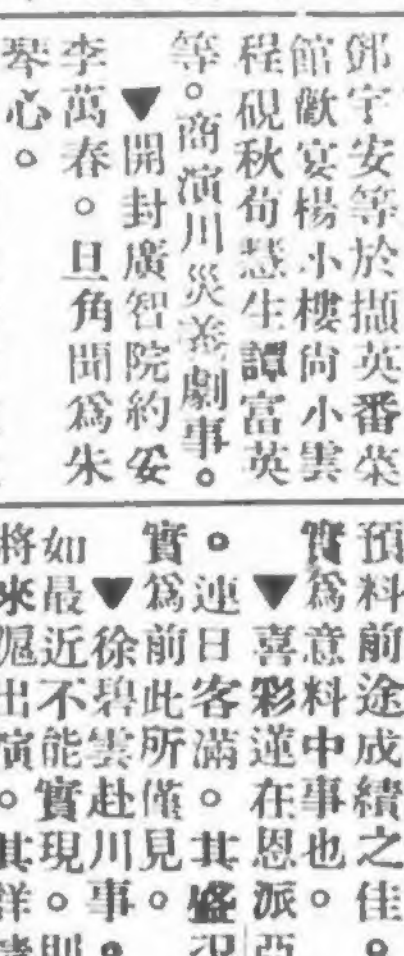 鄧宇安等於擷英番菜
館歡宴楊小樓尙小雲
程硯秋荀慧生譚富英
等。商演川災義劇事。
▼開封廣智院約妥
李萬春。旦角聞爲朱
琴心。
預料前途成績之佳。
實爲意料中事也。
▼喜彩蓮在恩派亞
。連日客滿。其盛況
實爲前此所僅見。
▼徐碧雲赴川事。
如最近不能實現。則
將來滬出演。其詳